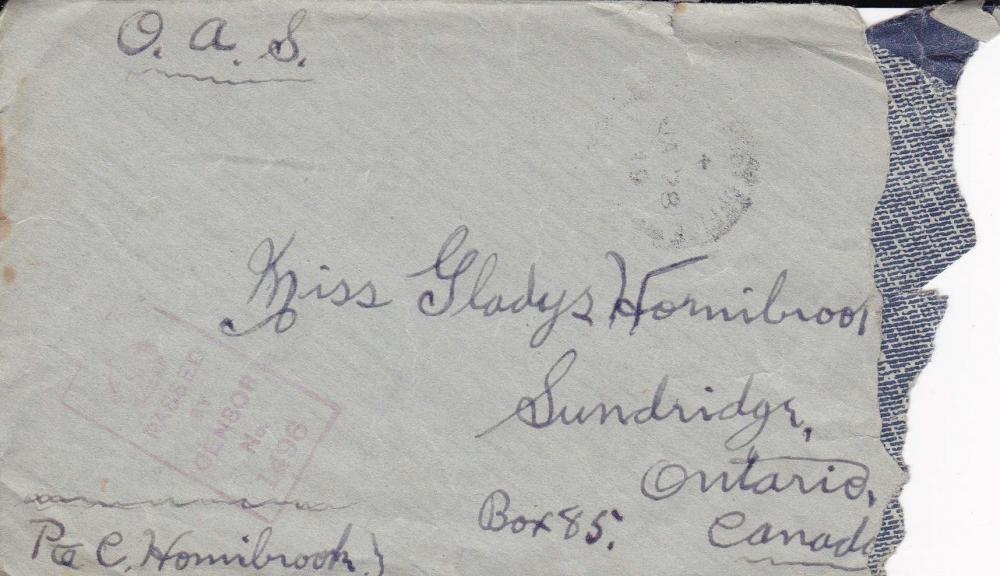 O. A. S.
JA 28
Miss Gladys Hornibrook
Sundridge,
Ontario,
Canada
Box 85.
PASSED
BY
CENSOR
No.
1496
Pte C. Hornibrook.